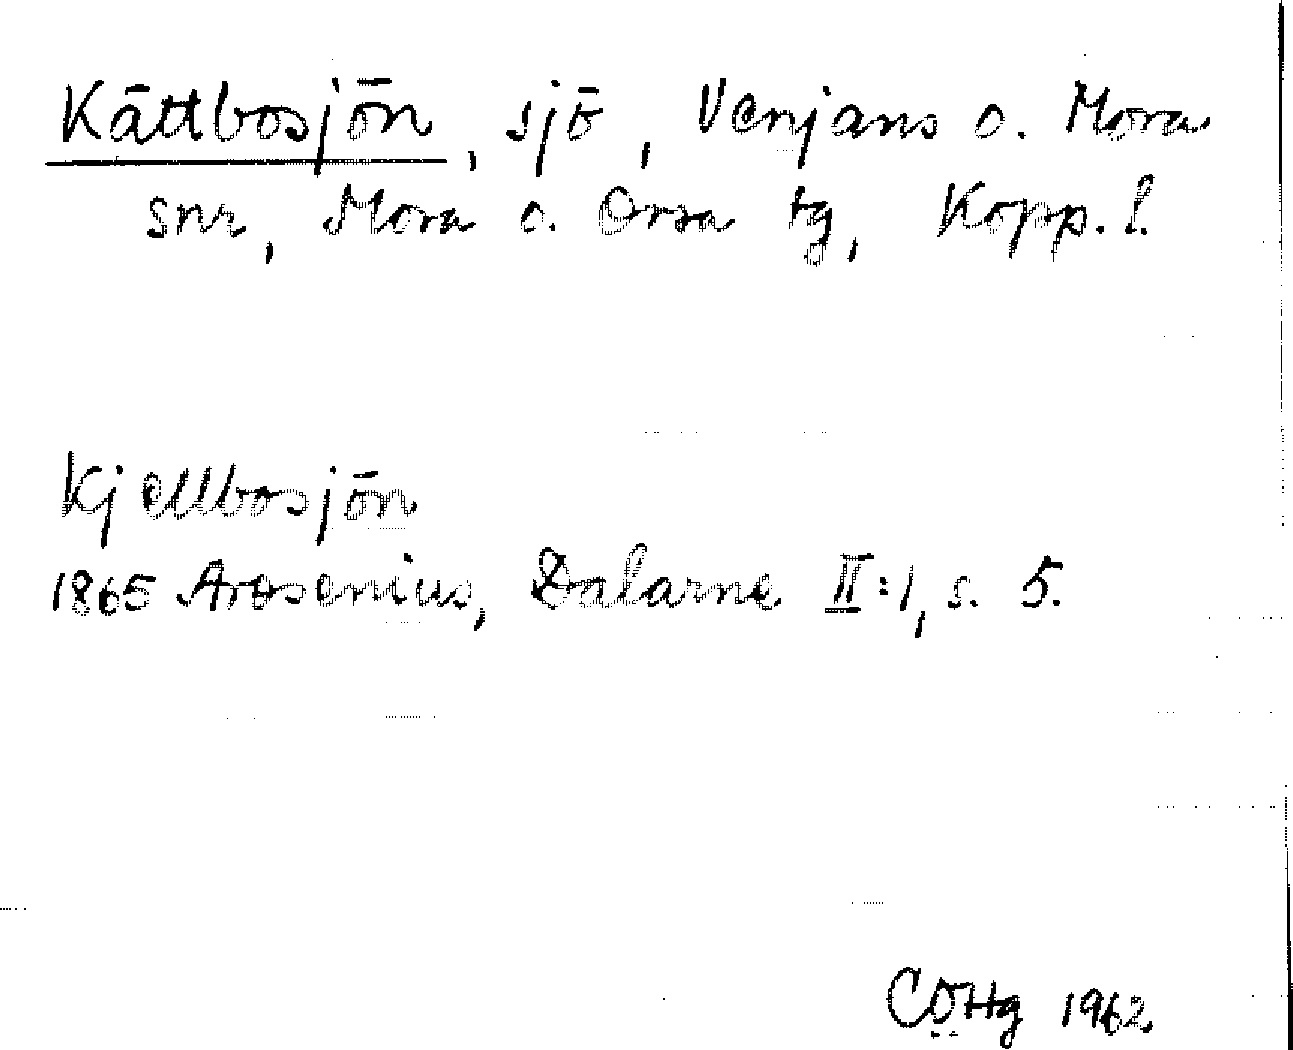 Kättbosjön, sjö, Venjans o. Mora
snr, Mora o. Orsa tg, Kopp. l.
Kjellbosjön
1865 Arosenius, Dalarne II:1, s. 5.
CÖHg 1962